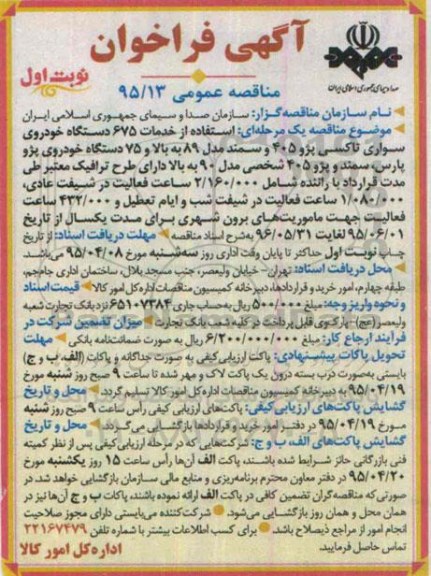 آگهی فراخوان
نوبت اول
صدا و سیمای جمهوری اسلامی ایران
مناقصه عمومی ۹۵/۱۳
نام سازمان مناقصه‌گزار: سازمان صدا و سیمای جمهوری اسلامی ایران
موضوع مناقصه یک مرحله‌ای: استفاده از خدمات ۶۷۵ دستگاه خودروی
سواری تاکسی پژو ۴۰۵ و سمند مدل ۸۹ به بالا و ۷۵ دستگاه خودروی پژو
پارس، سمند و پژو ۴۰۵ شخصی مدل ۹۰ به بالا دارای طرح ترافیک معتبر طی
مدت قرارداد با راننده شامل ۲/۱۶۰/۰۰۰ ساعت فعالیت در شیفت عادی،
۱/۰۸۰/۰۰۰ ساعت فعالیت در شیفت شب و ایام تعطیل و ۴۳۲/۰۰۰ ساعت
فعالیت جهت ماموریت‌های برون شهری برای مدت یکسال از تاریخ
۹۵/۰۶/۰۱ لغایت ۹۶/۰۵/۳۱ به‌شرح اسناد مناقصه مهلت دریافت اسناد: از تاریخ
چاپ نوبت اول حداکثر تا پایان وقت اداری روز سه‌شنبه مورخ ۹۵/۰۴/۰۸ می‌باشد.
محل دریافت اسناد: تهران- خیابان ولیعصر، جنب مسجد بلال، ساختمان اداری جام‌جم،
طبقه چهارم، امور خرید و قراردادها، دبیرخانه کمیسیون مناقصات اداره کل امور کالا قیمت اسناد
و نحوه واریز وجه: مبلغ ۵۰۰/۰۰۰ ریال به حساب جاری ۶۵۱۰۷۳۸۴ نزد بانک تجارت شعبه
ولیعصر (عج)- پارک‌وی قابل پرداخت در کلیه شعب بانک تجارت میزان تضمین شرکت در
فرآیند ارجاع کار: مبلغ ۶/۲۰۰/۰۰۰/۰۰۰ ریال به صورت ضمانت‌نامه بانکی مهلت
تحویل پاکات پیشنهادی: پاکت ارزیابی کیفی به صورت جداگانه و پاکات (الف، ب و ج)
بایستی به‌صورت درب بسته درون یک پاکت لاک و مهر شده تا ساعت ۹ صبح روز شنبه مورخ
۹۵/۰۴/۱۹ به دبیرخانه کمیسیون مناقصات اداره کل امور کالا تسلیم گردد. محل و تاریخ
گشایش پاکت‌های ارزیابی کیفی: پاکت‌های ارزیابی کیفی رأس ساعت ۹ صبح روز شنبه
مورخ ۹۵/۰۴/۱۹ در دفتر امور خرید و قراردادها بازگشایی می‌گردد. محل و تاریخ
گشایش پاکت‌های الف، ب و ج: شرکت‌هایی که در مرحله ارزیابی کیفی پس از نظر کمیته
فنی بازرگانی حائز شرایط شده باشند، پاکت الف آن‌ها رأس ساعت ۱۵ روز یکشنبه مورخ
۹۵/۰۴/۲۰ در دفتر معاون محترم برنامه‌ریزی و منابع مالی سازمان بازگشایی خواهد شد. در
صورتی که مناقصه‌گران تضمین کافی در پاکت الف ارائه نموده باشند، پاکات ب و ج آن‌ها نیز در
همان محل و همان روز بازگشایی می‌شود. شرکت‌کننده می‌بایستی دارای مجوز صلاحیت
انجام امور از مراجع ذیصلاح باشد. برای کسب اطلاعات بیشتر با شماره تلفن ۲۲۱۶۷۴۷۹
تماس حاصل فرمایید.
اداره کل امور کالا